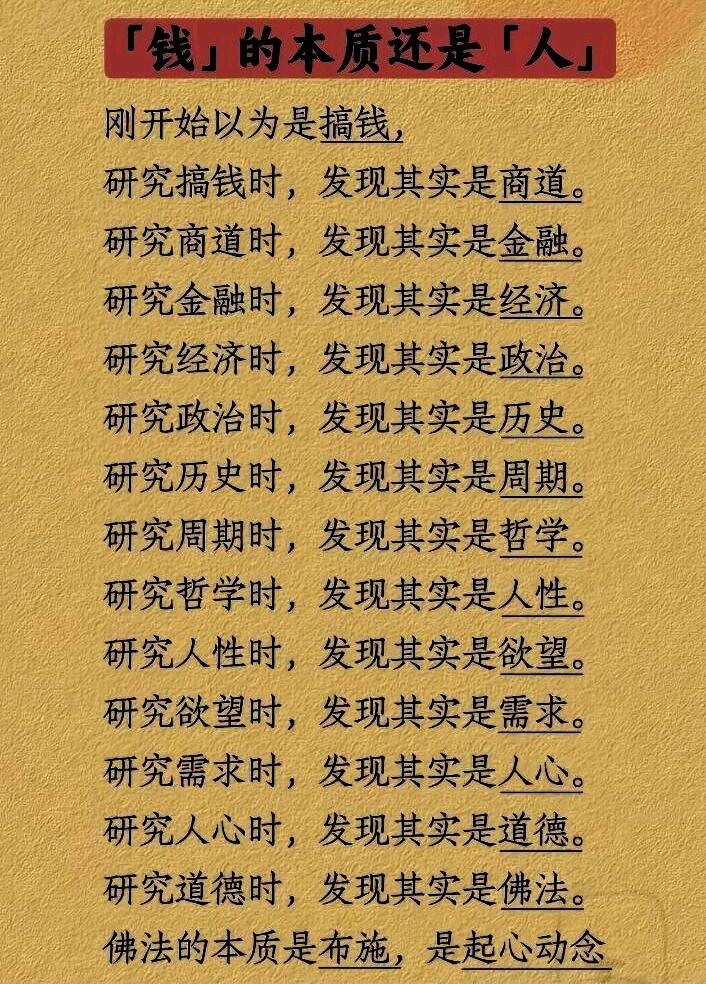 「钱」的本质还是「人」
刚开始以为是搞钱，
研究搞钱时，发现其实是商道。
研究商道时，发现其实是金融。
研究金融时，发现其实是经济。
研究经济时，发现其实是政治。
研究政治时，发现其实是历史。
研究历史时，发现其实是周期。
研究周期时，发现其实是哲学。
研究哲学时，发现其实是人性。
研究人性时，发现其实是欲望。
研究欲望时，发现其实是需求。
研究需求时，发现其实是人心。
研究人心时，发现其实是道德。
研究道德时，发现其实是佛法。
佛法的本质是布施，是起心动念